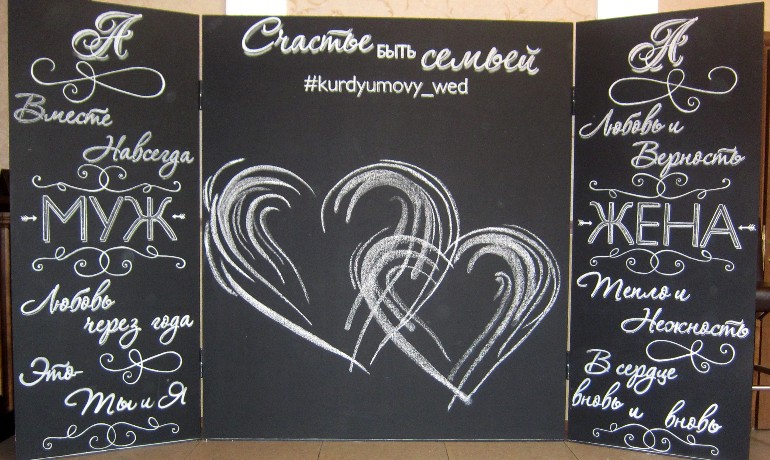 А
Вместе
Навсегда
МУЖ
Любовь
через года
Это-
Ты и Я
Счастье быть семьей
#kurdyumovy_wed
Я
Любовь и
Верность
ЖЕНА
Тепло и
Нежность
В сердце
вновь и вновь